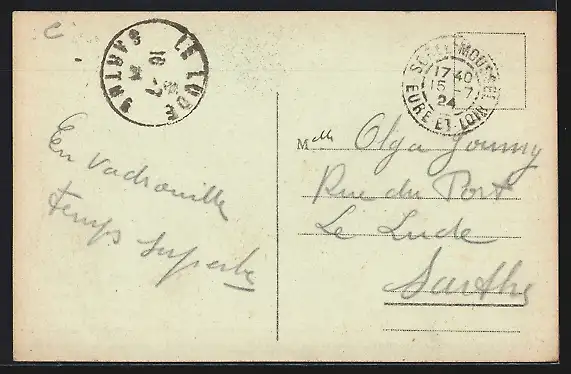 LE LUDE
SARTHE
SOREL-MOUSSEL
17 40
15 -7
24
EURE ET LOIR
En vadrouille
temps superbe
Mlle Olga
Rue du Port
Le Lude
Sarthe